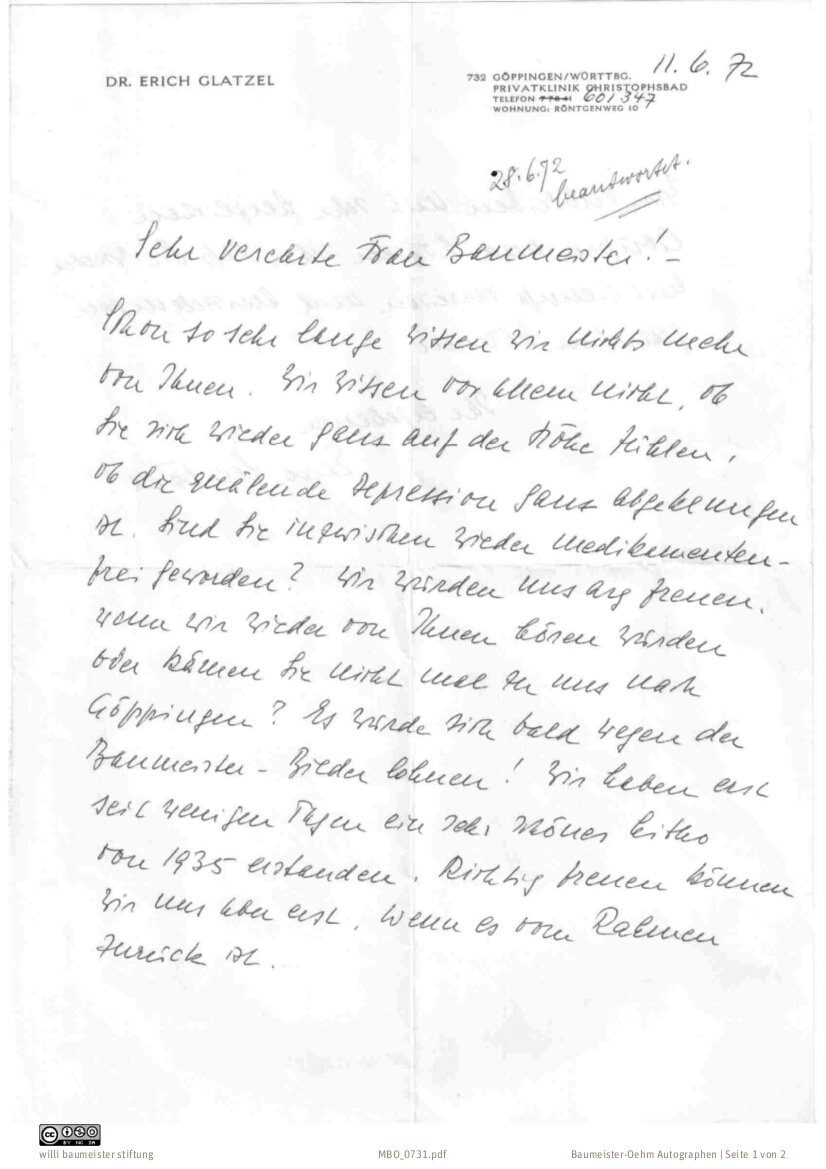 DR. ERICH GLATZEL
732 GÖPPINGEN/WÜRTTBG. 11.6.72
PRIVATKLINIK CHRISTOPHSBAD
TELEFON 77841 601347
WOHNUNG: RÖNTGENWEG 10
28.6.72
beantwortet.
Sehr verehrte Frau Baumeister! –
Schon so sehr lange wissen wir nichts mehr
von Ihnen. Wir wissen vor allem nicht, ob
Sie sich wieder ganz auf der Höhe fühlen,
ob die quälende Depression ganz abgeklungen
ist. Sind Sie inzwischen wieder medikamenten-
frei geworden? Wir würden uns arg freuen,
wenn wir wieder von Ihnen hören würden
oder kämen Sie nicht mal zu uns nach
Göppingen? Es würde sich bald wegen der
Baumeister-Bilder lohnen! Wir haben erst
seit wenigen Tagen ein sehr schönes Litho
von 1935 erstanden. Richtig freuen können
wir uns aber erst, wenn es vom Rahmen
zurück ist.
CC BY NC SA
willi baumeister stiftung
MBO_0731.pdf
Baumeister-Oehm Autographen | Seite 1 von 2